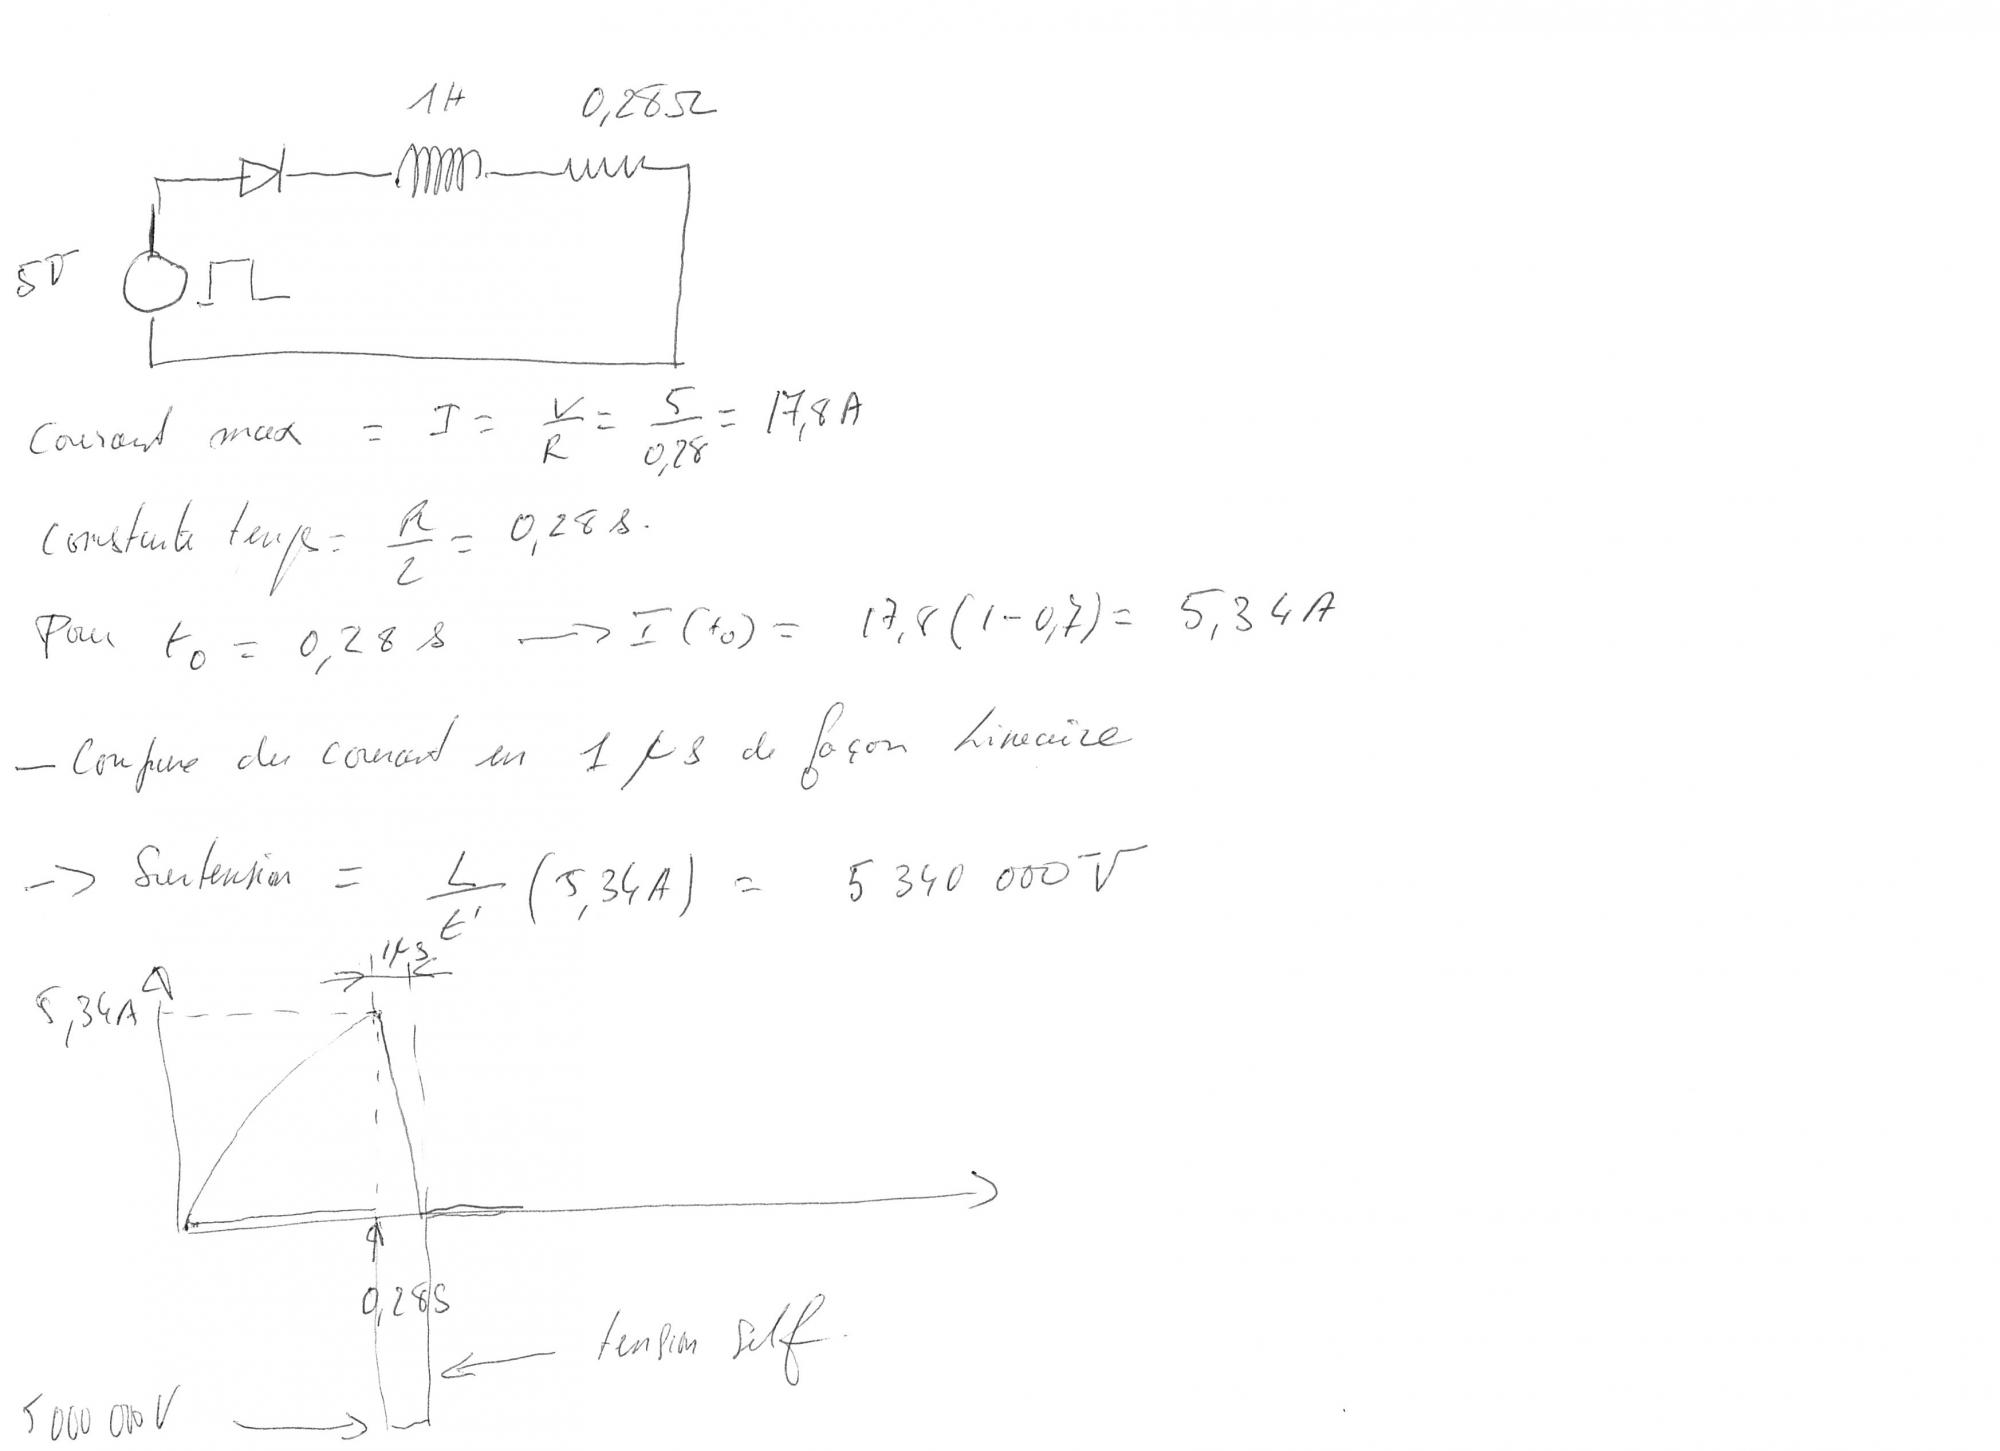 1H 0,28Ω
5V
Courant max = I = V/R = 5/0,28 = 17,8A
Constante temps = R/L = 0,28 s.
Pour t0 = 0,28 s → I(t0) = 17,8(1-0,7) = 5,34A
- Coupure du courant en 1 µs de façon Lineaire
-> Surtension = L/t' (5,34A) = 5 340 000 V
1µs
5,34A
0,28S
tension self.
5 000 000 V